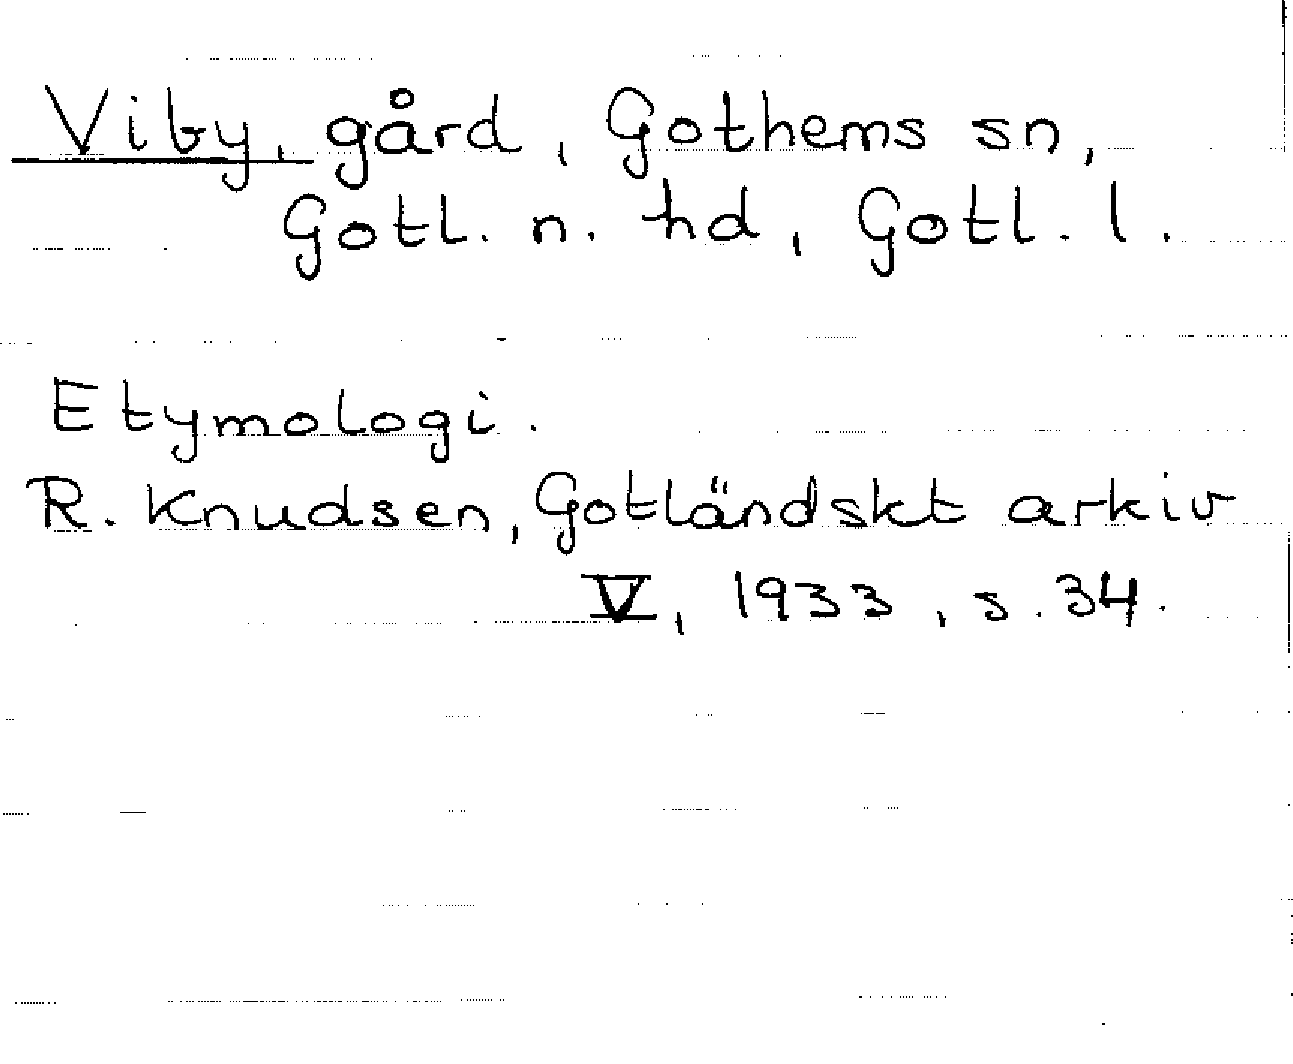 Viby, gård, Gothems sn,
Gotl. n. hd, Gotl. l.
Etymologi.
R. Knudsen, Gotländskt arkiv
V, 1933, s. 34.